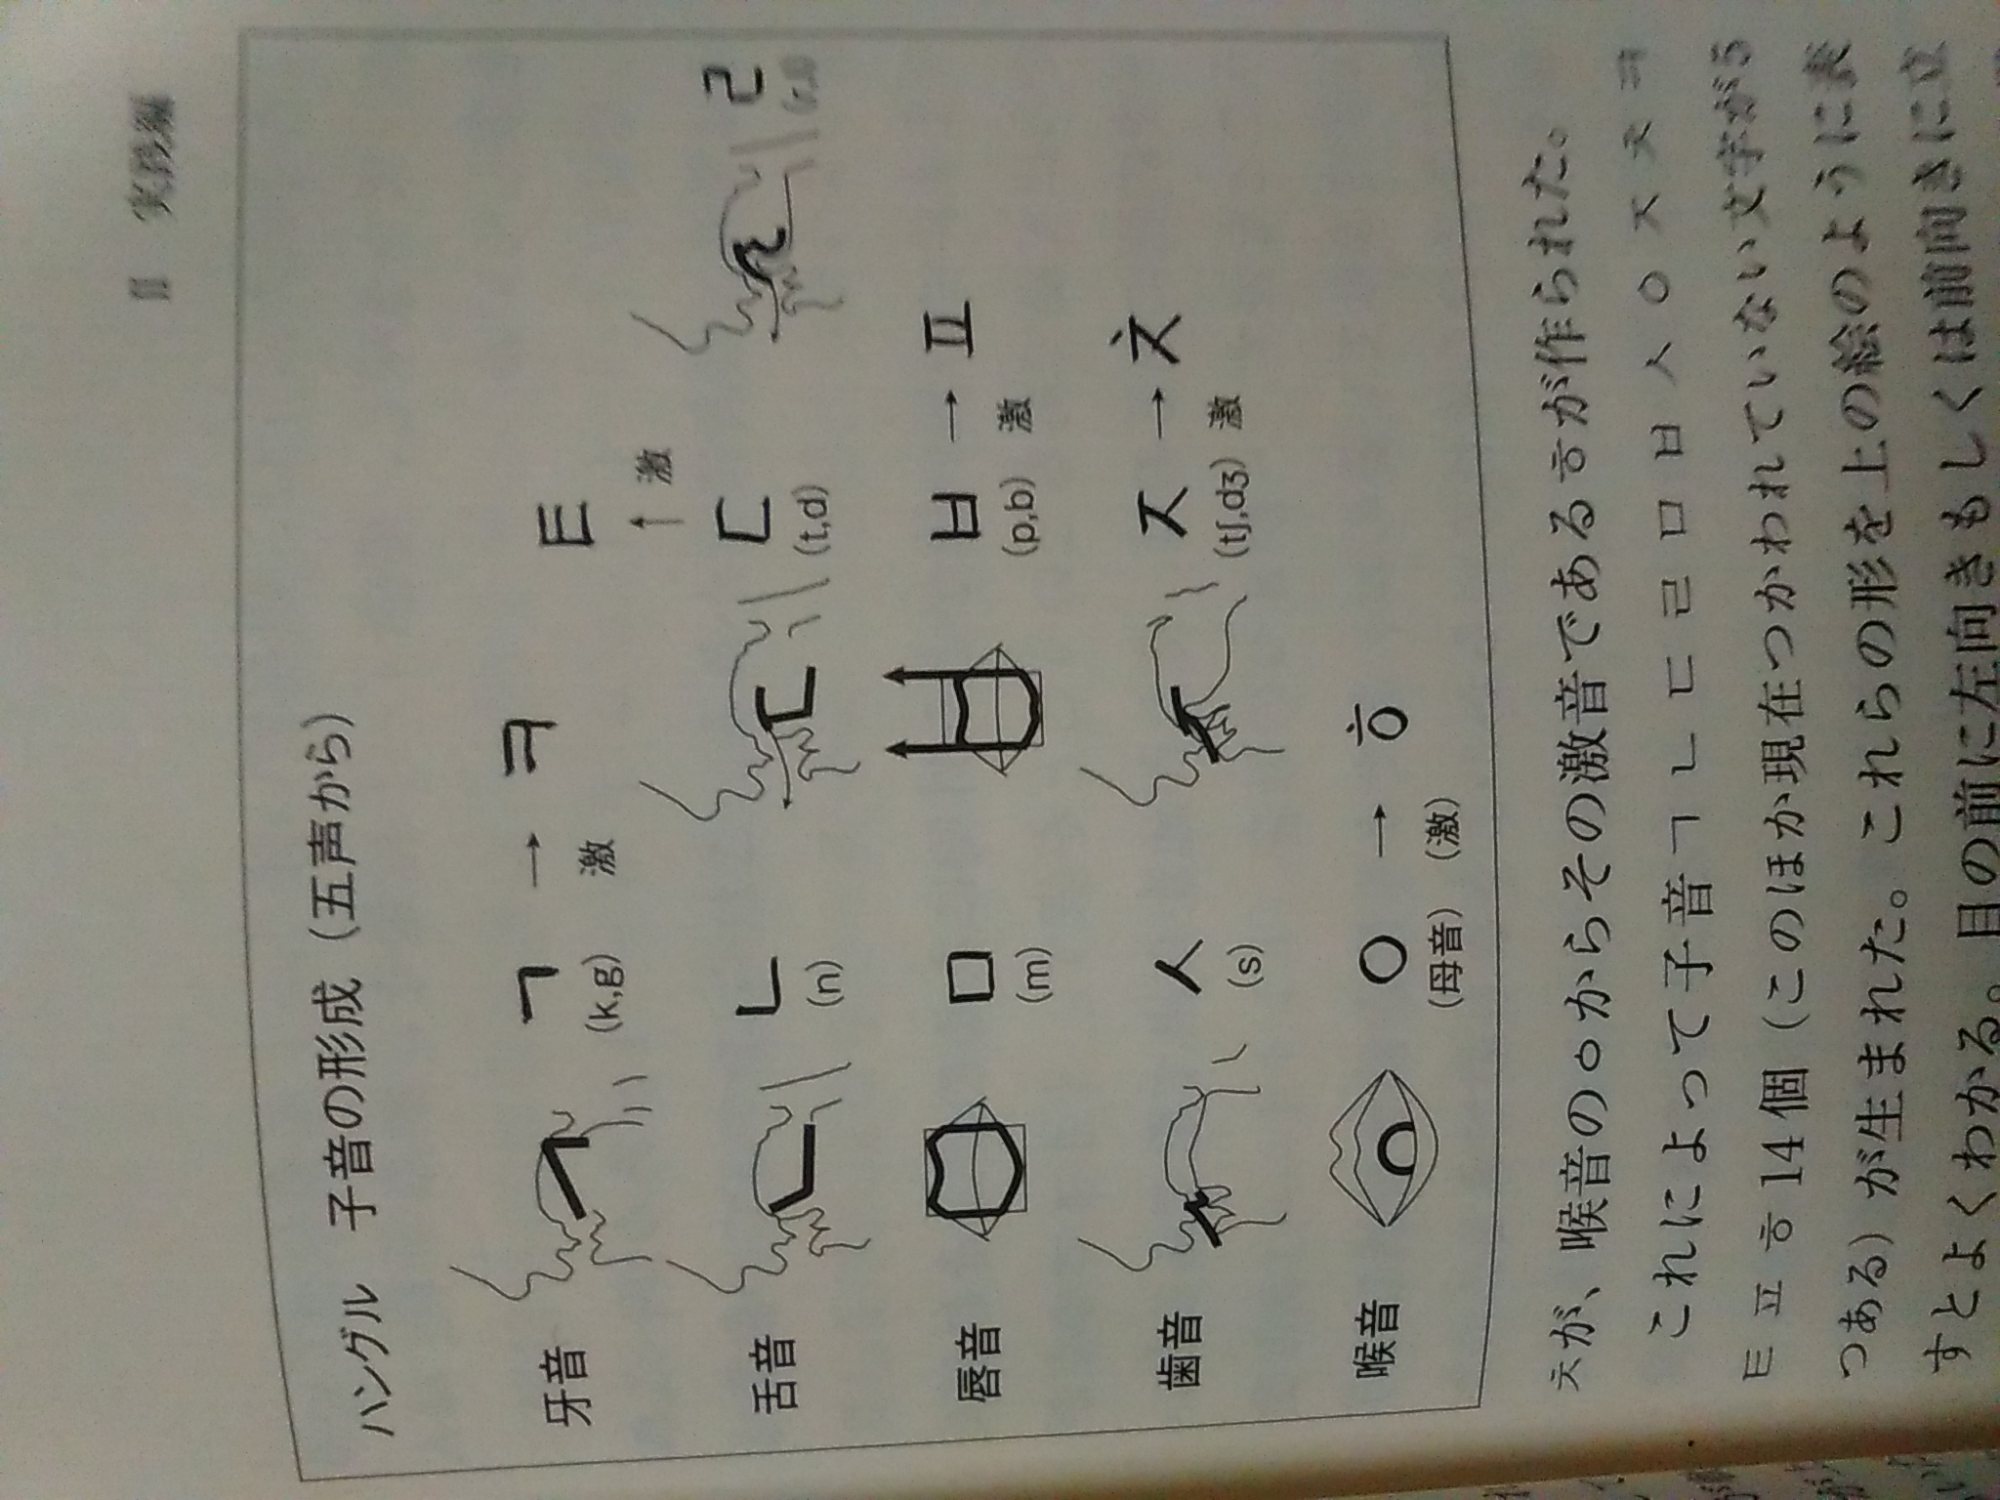 II 実務編
ハングル 子音の形成（五声から）
牙音 ㄱ → ㅋ
(k,g) 激
ㅌ
↑ 激
舌音 ㄴ ㄷ ㄹ
(n) (t,d)
唇音 ㅁ ㅂ → ㅍ
(m) (p,b) 激
歯音 ㅅ ㅈ → ㅊ
(s) (tʃ,dʒ) 激
喉音 ㅇ → ㅎ
(母音) (激)
ㅊが、喉音のㅇからその激音であるㅎが作られた。
これによって子音ㄱ ㄴ ㄷ ㄹ ㅁ ㅂ ㅅ ㅇ ㅈ ㅊ ㅋ
ㅌ ㅍ ㅎ 14個（このほか現在つかわれていない文字が5
つある）が生まれた。これらの形を上の絵のように表
すとよくわかる。目の前に左向きもしくは前向きに立